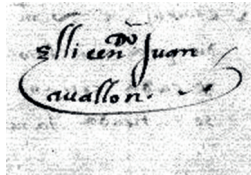 Elli cen^do Juan
auallon.